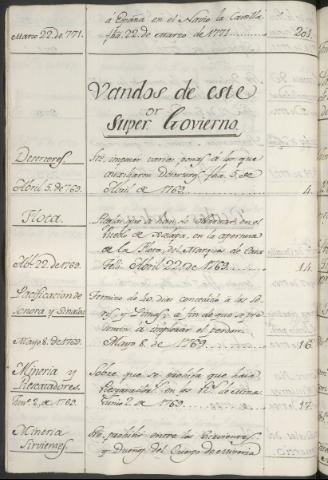 a España en el Navio la Castilla
Marzo 22 de 771. fha. 22 de Marzo de 1771 201.
Vandos de este
Super.or Govierno
Desertores Sre. imponer varias penas á los que
auxiliaren Desertores fha. 5. de
Abril 5. de 769. Abril de 1769. 4.
Flota. Reglas que se han de observar en el
Pueblo de Xalapa, en la apertura
de la Feria, del Marques de
Ab.l 22. de 1769. Fha. Abril 22. de 1769. 14.
Pacificacion de Termino de 40 dias concedido á los
Sonora y Sinaloa y á fin de que se pre
senten á implorar el perdon.
Mayo 8. de 1769. Mayo 8. de 1769. 16.
Mineria y Sobre que se prohiva que haia
Rescatadores. en los R.s de Minas
Jun.o 2. de 1769. Junio 2. de 1769. 17.
Mineria Sre. pleitos entre los Sirvientes,
Sirvientes. y Dueños del Cuerpo de Mineria